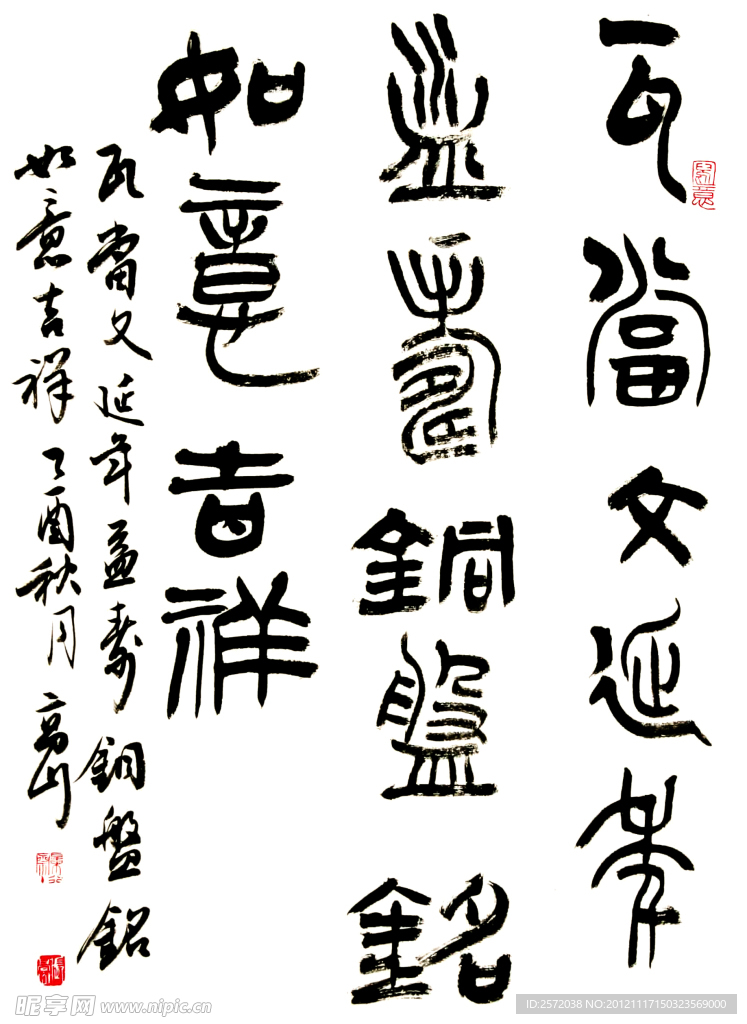 瓦當文延年
益壽銅盤銘
如意吉祥
瓦當文延年益壽銅盤銘
如意吉祥 乙酉秋月
昵享网 www.nipic.cn
ID:2572038 NO:20121117150323569000